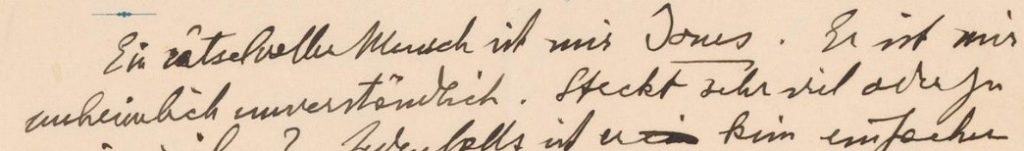 Ein rätselvoller Mensch ist mir Jones. Er ist mir
unheimlich unverständlich. Steckt sehr viel oder zu
Jedenfalls ist er kein einfacher